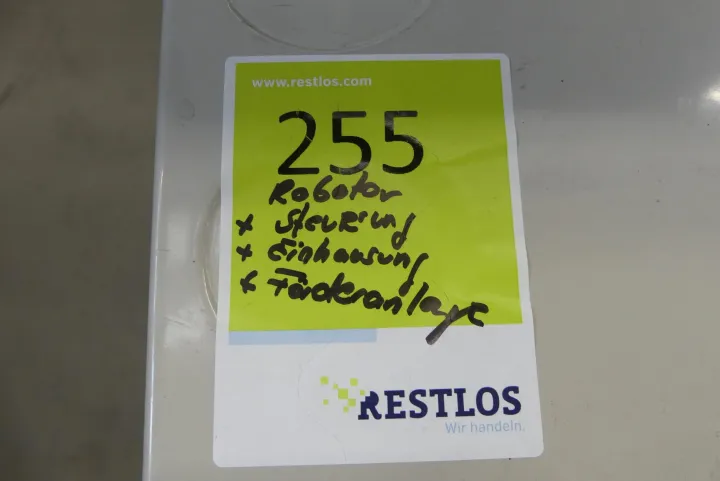 www.restlos.com
255
Roboter
+ Steuerung
+ Einhausung
+ Förderanlage
RESTLOS
Wir handeln.